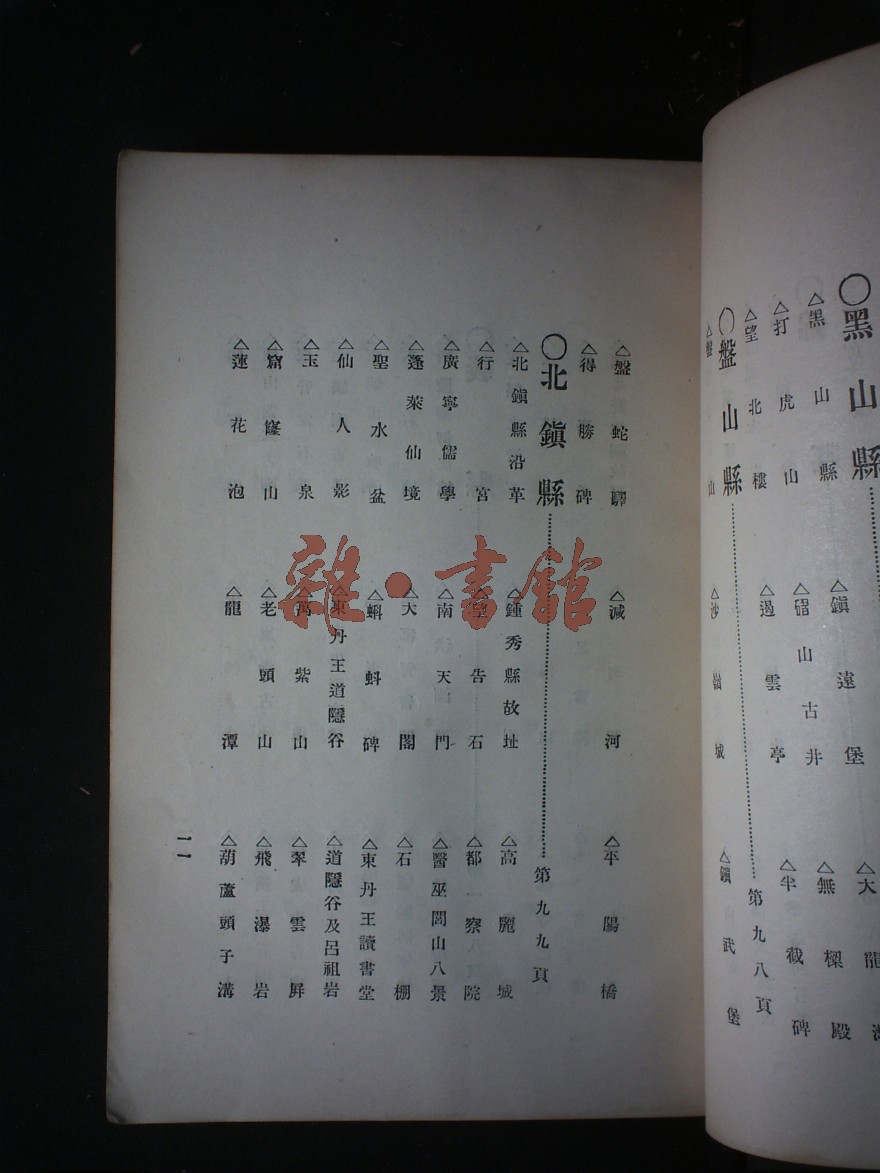 〇黑山縣
△鎭遠堡 △大龍
△黑山縣 △碏山古井 △無樑殿
△打虎山 △過雲亭 △半截碑
△望北樓
〇盤山縣……第九八頁
△盤山 △沙嶺城 △鎭武堡
△盤蛇驛 △減河 △平陽橋
△得勝碑
〇北鎭縣……第九九頁
△北鎭縣沿革 △鍾秀縣故址 △高麗城
△行宮 △望告石 △都察院
△廣寧儒學 △南天門 △醫巫閭山八景
△蓬萊仙境 △大閣 △石棚
△聖水盆 △蝌蚪碑 △東丹王讀書堂
△仙人影 △東丹王道隱谷 △道隱谷及呂祖岩
△玉泉 △萬紫山 △翠雲屛
△窟窿山 △老頭山 △飛瀑岩
△蓮花泡 △龍潭 △葫蘆頭子溝
一一
雜·書館